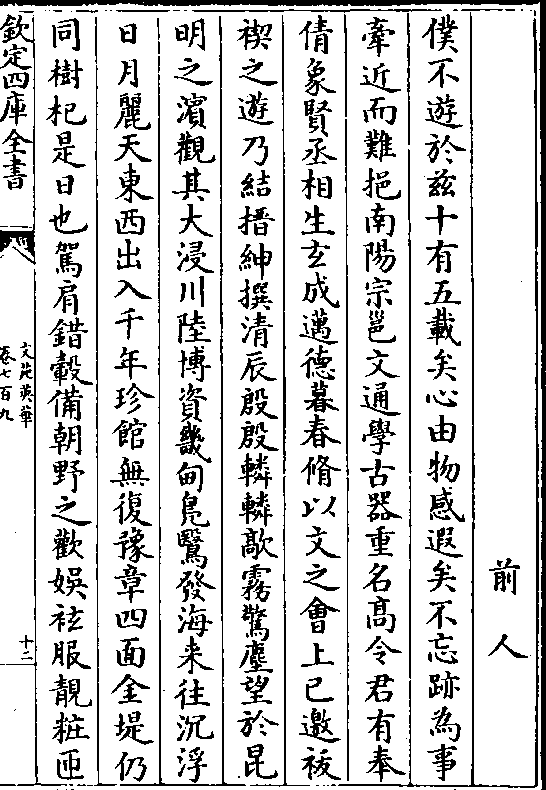 前人
僕不遊於兹十有五載矣心由物感遐矣不忘跡為事
牽近而難挹南陽宗邕文通學古器重名髙令君有奉
倩象賢丞相生玄成邁德暮春脩以文之會上巳邀袚
禊之遊乃結搢紳撰清辰殷殷轔轔歊霧驚塵望於昆
明之濱觀其大浸川陸博資畿甸鳬鷖發海来往沉浮
日月麗天東西出入千年珍館無復豫章四面金堤仍
同樹杞是日也駕肩錯轂備朝野之歡娛袨服靚粧匝
欽定四庫全書
文苑英華
卷七百九
十二